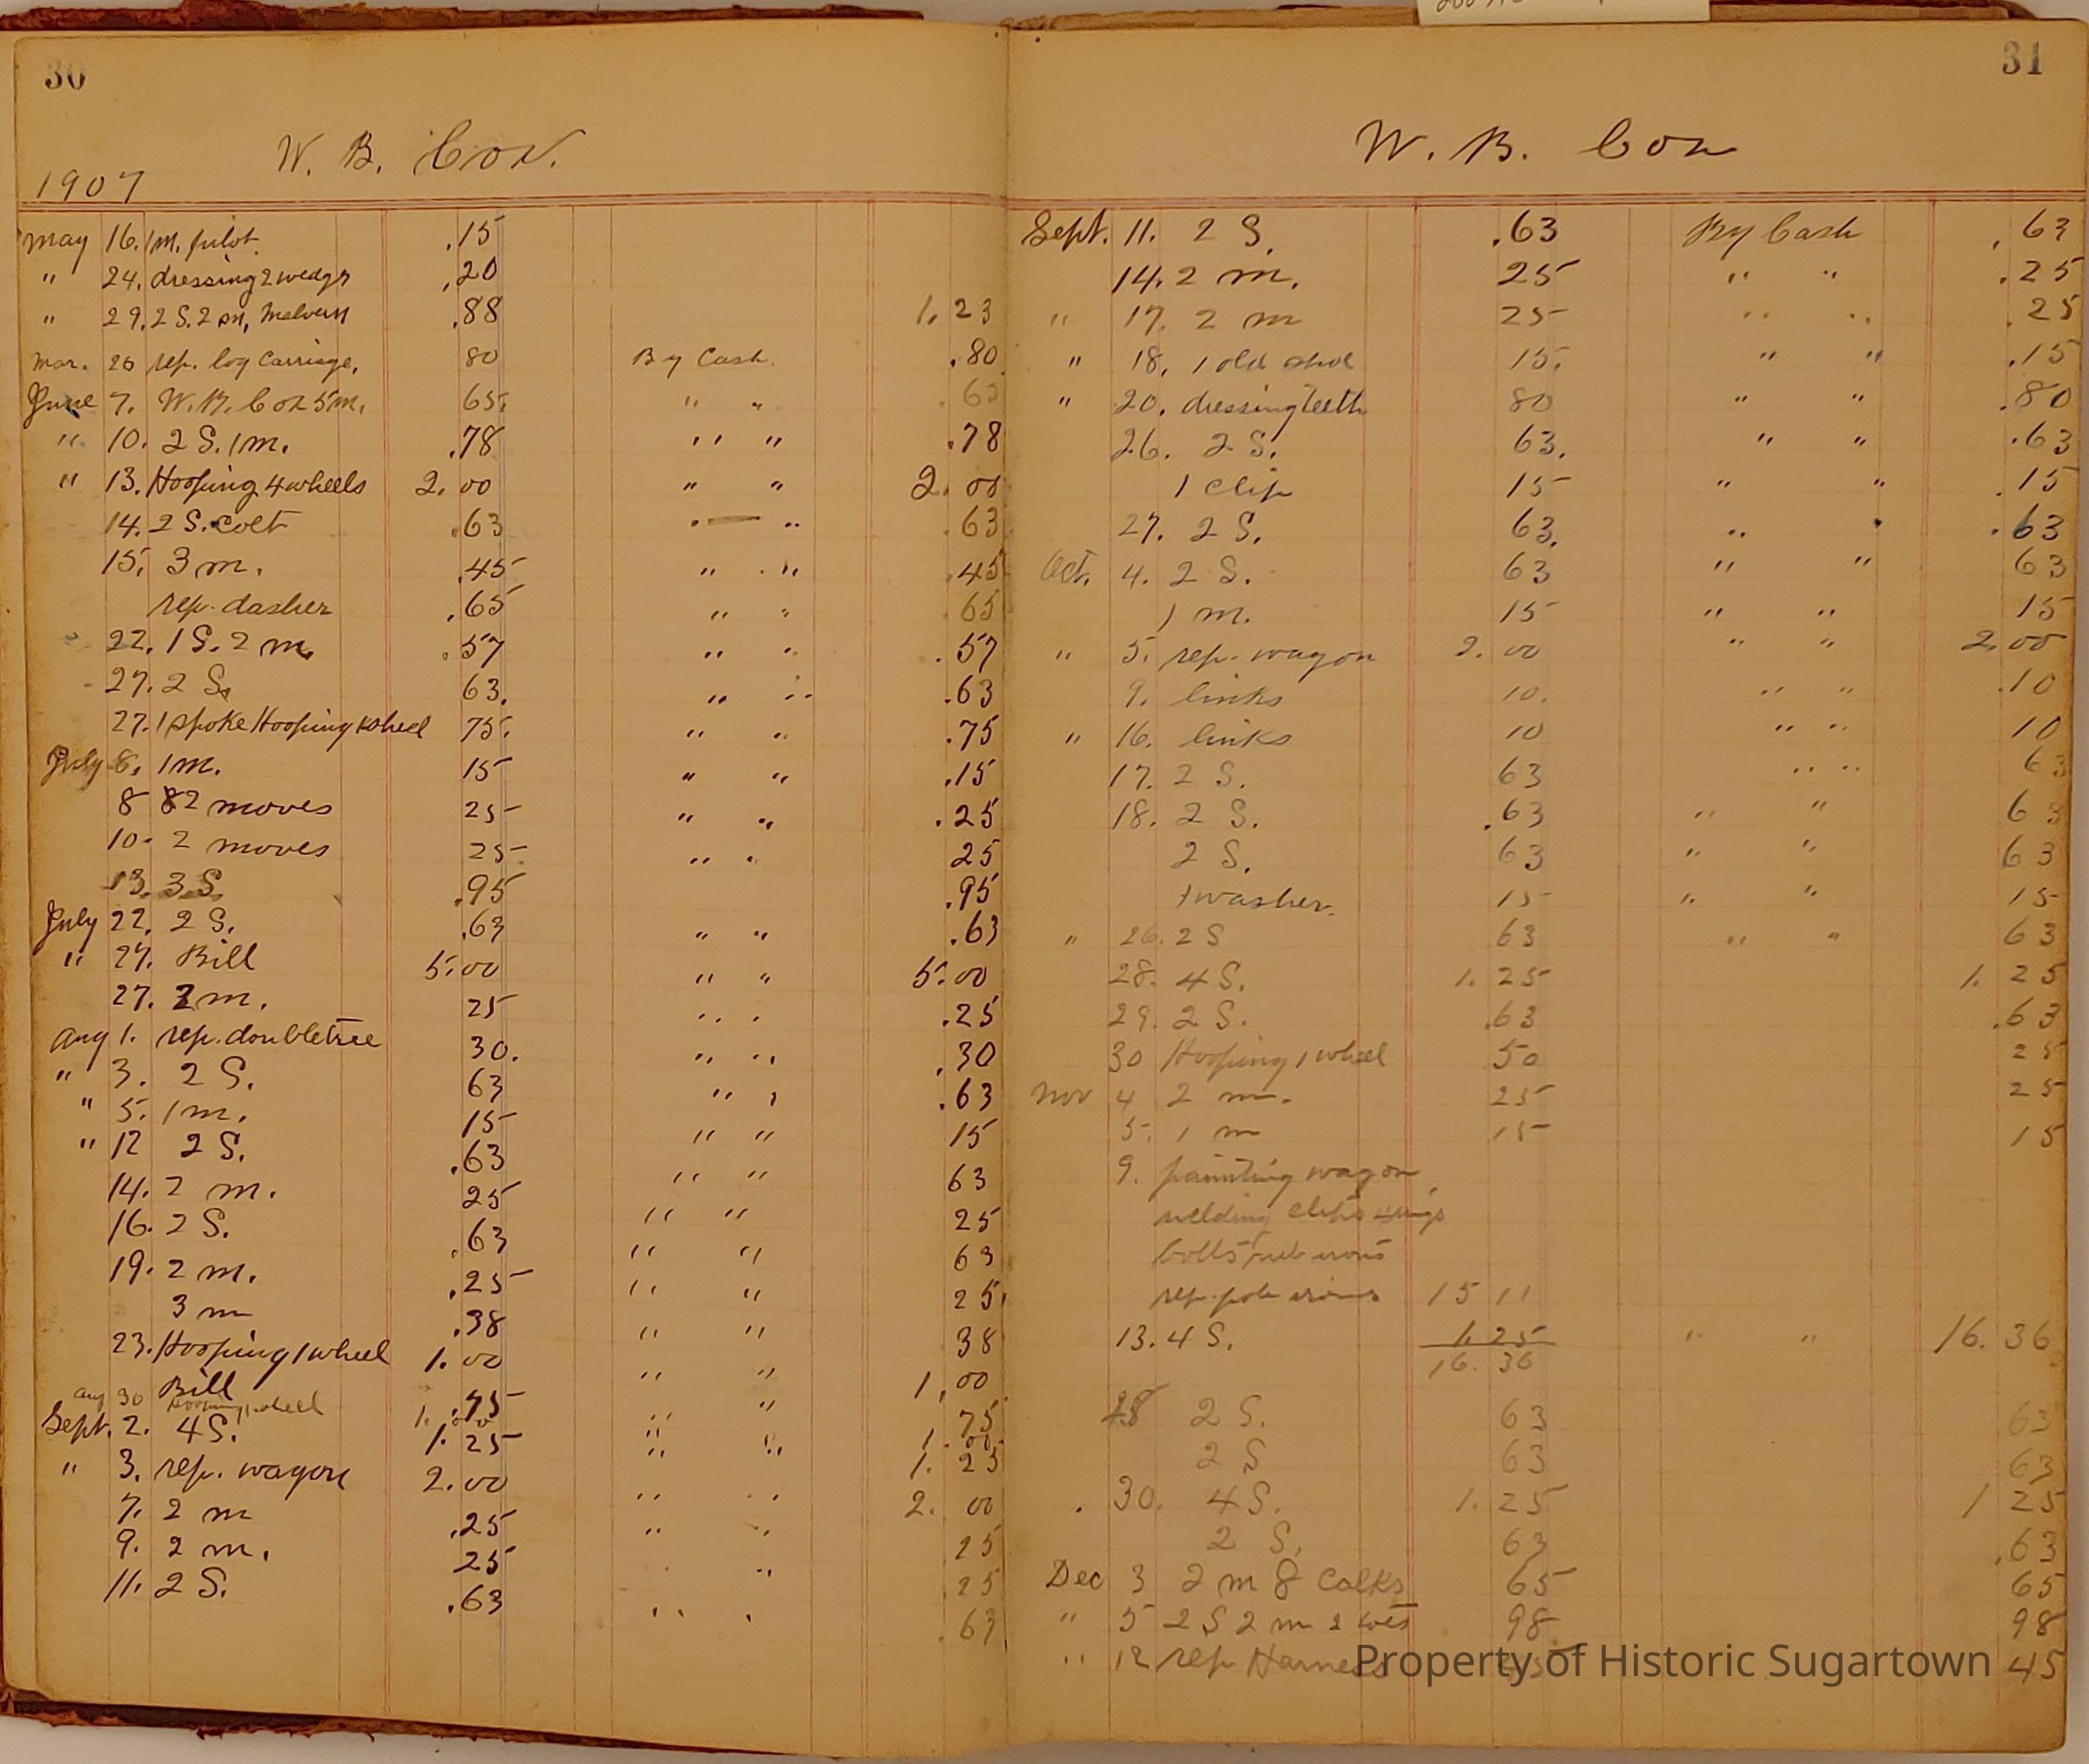 30
W. B. Cox.
1907
May 16. 1 m. pilot. .15
" 24. dressing 2 wedgs .20
" 29. 2 S. 2 m, Malvern .88 1.23
Mar. 26 rep. log Carriage, 80 By Cash. .80
June 7. W. B. Cox 5 m. 65. " " .65
" 10. 2 S. 1 m. .78 " " .78
" 13. Hooping 4 wheels 2.00 " " 2.00
14. 2 S. colt .63 " " .63
15. 3 m. .45 " " .45
rep. dasher .65 " " 65
22. 1 S. 2 m. .57 " " .57
27. 2 S. 63. " " .63
27. 1 spoke Hooping wheel 75. " " .75
July 6. 1 m. 15 " " .15
8 2 moves 25 " " .25
10. 2 moves 25 " " 25
13. 3 S. .95 .95
July 22. 2 S. .63 " " .63
" 27. Bill 5.00 " " 5.00
27. 2 m. 25 " " .25
Aug 1. rep. doubletree 30. " " .30
" 3. 2 S. 63 " " .63
" 5. 1 m. 15 " " 15
" 12 2 S. .63 " " 63
14. 2 m. 25 " " 25
16. 2 S. .63 " " 63
19. 2 m. .25 " " 25
3 m .38 " " 38
23. Hooping 1 wheel 1.00 " " 1.00
Bill .75 " 75
Aug 30 Hooping 1 wheel 1.00 " " 1.00
Sept. 2. 4 S. 1.25 " " 1.25
" 3. rep. wagon 2.00 " " 2.00
7. 2 m .25 " " 25
9. 2 m. 25 " 25
11. 2 S. .63 " " .63
31
W. B. Cox
Sept. 11. 2 S. .63 By Cash .63
14. 2 m. 25 " " .25
" 17. 2 m 25 " " .25
" 18. 1 old shoe 15. " " .15
" 20. dressing teeth 80 " " .80
26. 2 S. 63. " " .63
1 clip 15 " " .15
27. 2 S. 63. " " .63
Oct. 4. 2 S. 63 " " 63
1 m. 15 " " 15
" 5. rep. wagon 2.00 " " 2.00
9. links 10. " " .10
" 16. links 10 " " 10
17. 2 S. 63 " " 63
18. 2 S. .63 " " 63
2 S. 63 " " 63
1 washer. 15 " " 15
" 26. 2 S 63 " " 63
28. 4 S. 1.25 1.25
29. 2 S. .63 .63
30 Hooping 1 wheel 50 25
Nov 4 2 m. 25 25
5. 1 m 15 15
9. painting wagon
welding clips
bolts rub irons
rep. pole irons 15 11
13. 4 S. 1.25 " " 16.36
16.36
28 2 S. 63 63
2 S 63 63
30. 4 S. 1.25 1 25
2 S. 63 .63
Dec 3 2 m 8 Calks 65 65
" 5 2 S 2 m 2 toes 98 98
" 12 rep Harness 45
Property of Historic Sugartown